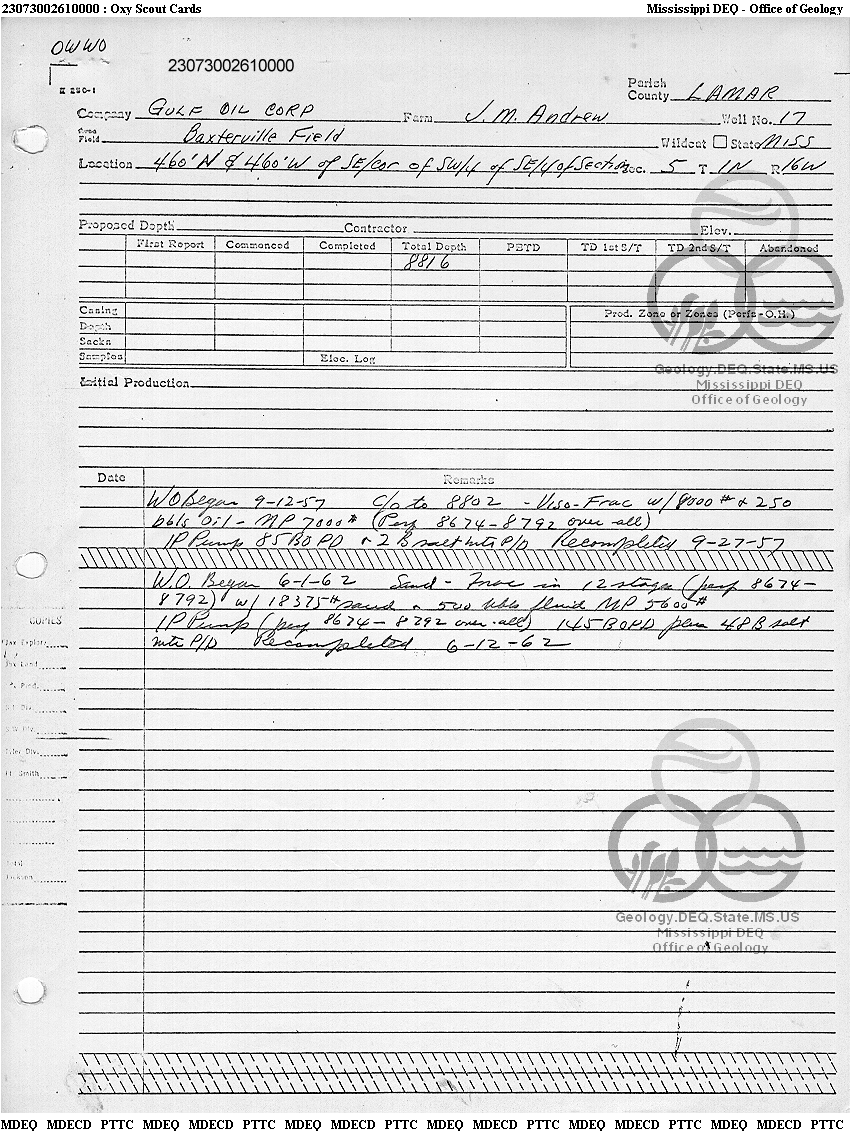 23073002610000 : Oxy Scout Cards Mississippi DEQ - Office of Geology
OWWO
23073002610000
Parish
County LAMAR
Company GULF OIL CORP Farm J.M. Andrew Well No. 17
Field Baxterville Field Wildcat State MISS
Location 460' N & 460' W of SE/cor of SW/4 of SE/4 of Section Sec. 5 T 1N R 16W
Proposed Depth Contractor Elev.
First Report Commenced Completed Total Depth PBTD TD 1st S/T TD 2nd S/T Abandoned
8816
Casing Prod. Zone or Zones (Perfs-O.H.)
Depth
Sacks
Samples Elec. Log
Geology.DEQ.State.MS.US
Initial Production
Mississippi DEQ
Office of Geology
Date Remarks
WO Began 9-12-57 C/o to 8802 - Viso-Frac w/8000# & 250
bbls oil - MP 7000# (Perf 8674-8792 over-all)
IP Pump 85 BOPD & 2 B salt wtr P/D Recompleted 9-27-57
W.O. Began 6-1-62 Sand-Frac in 12 stages (perf 8674-
8792) w/ 18375# sand & 500 bbls fluid MP 5600#
IP Pump (perf 8674-8792 over-all) 145 BOPD plus 48 B salt
wtr P/D Recompleted 6-12-62
COPIES
Geology.DEQ.State.MS.US
Mississippi DEQ
Office of Geology
MDEQ MDECD PTTC MDEQ MDECD PTTC MDEQ MDECD PTTC MDEQ MDECD PTTC MDEQ MDECD PTTC MDEQ MDECD PTTC